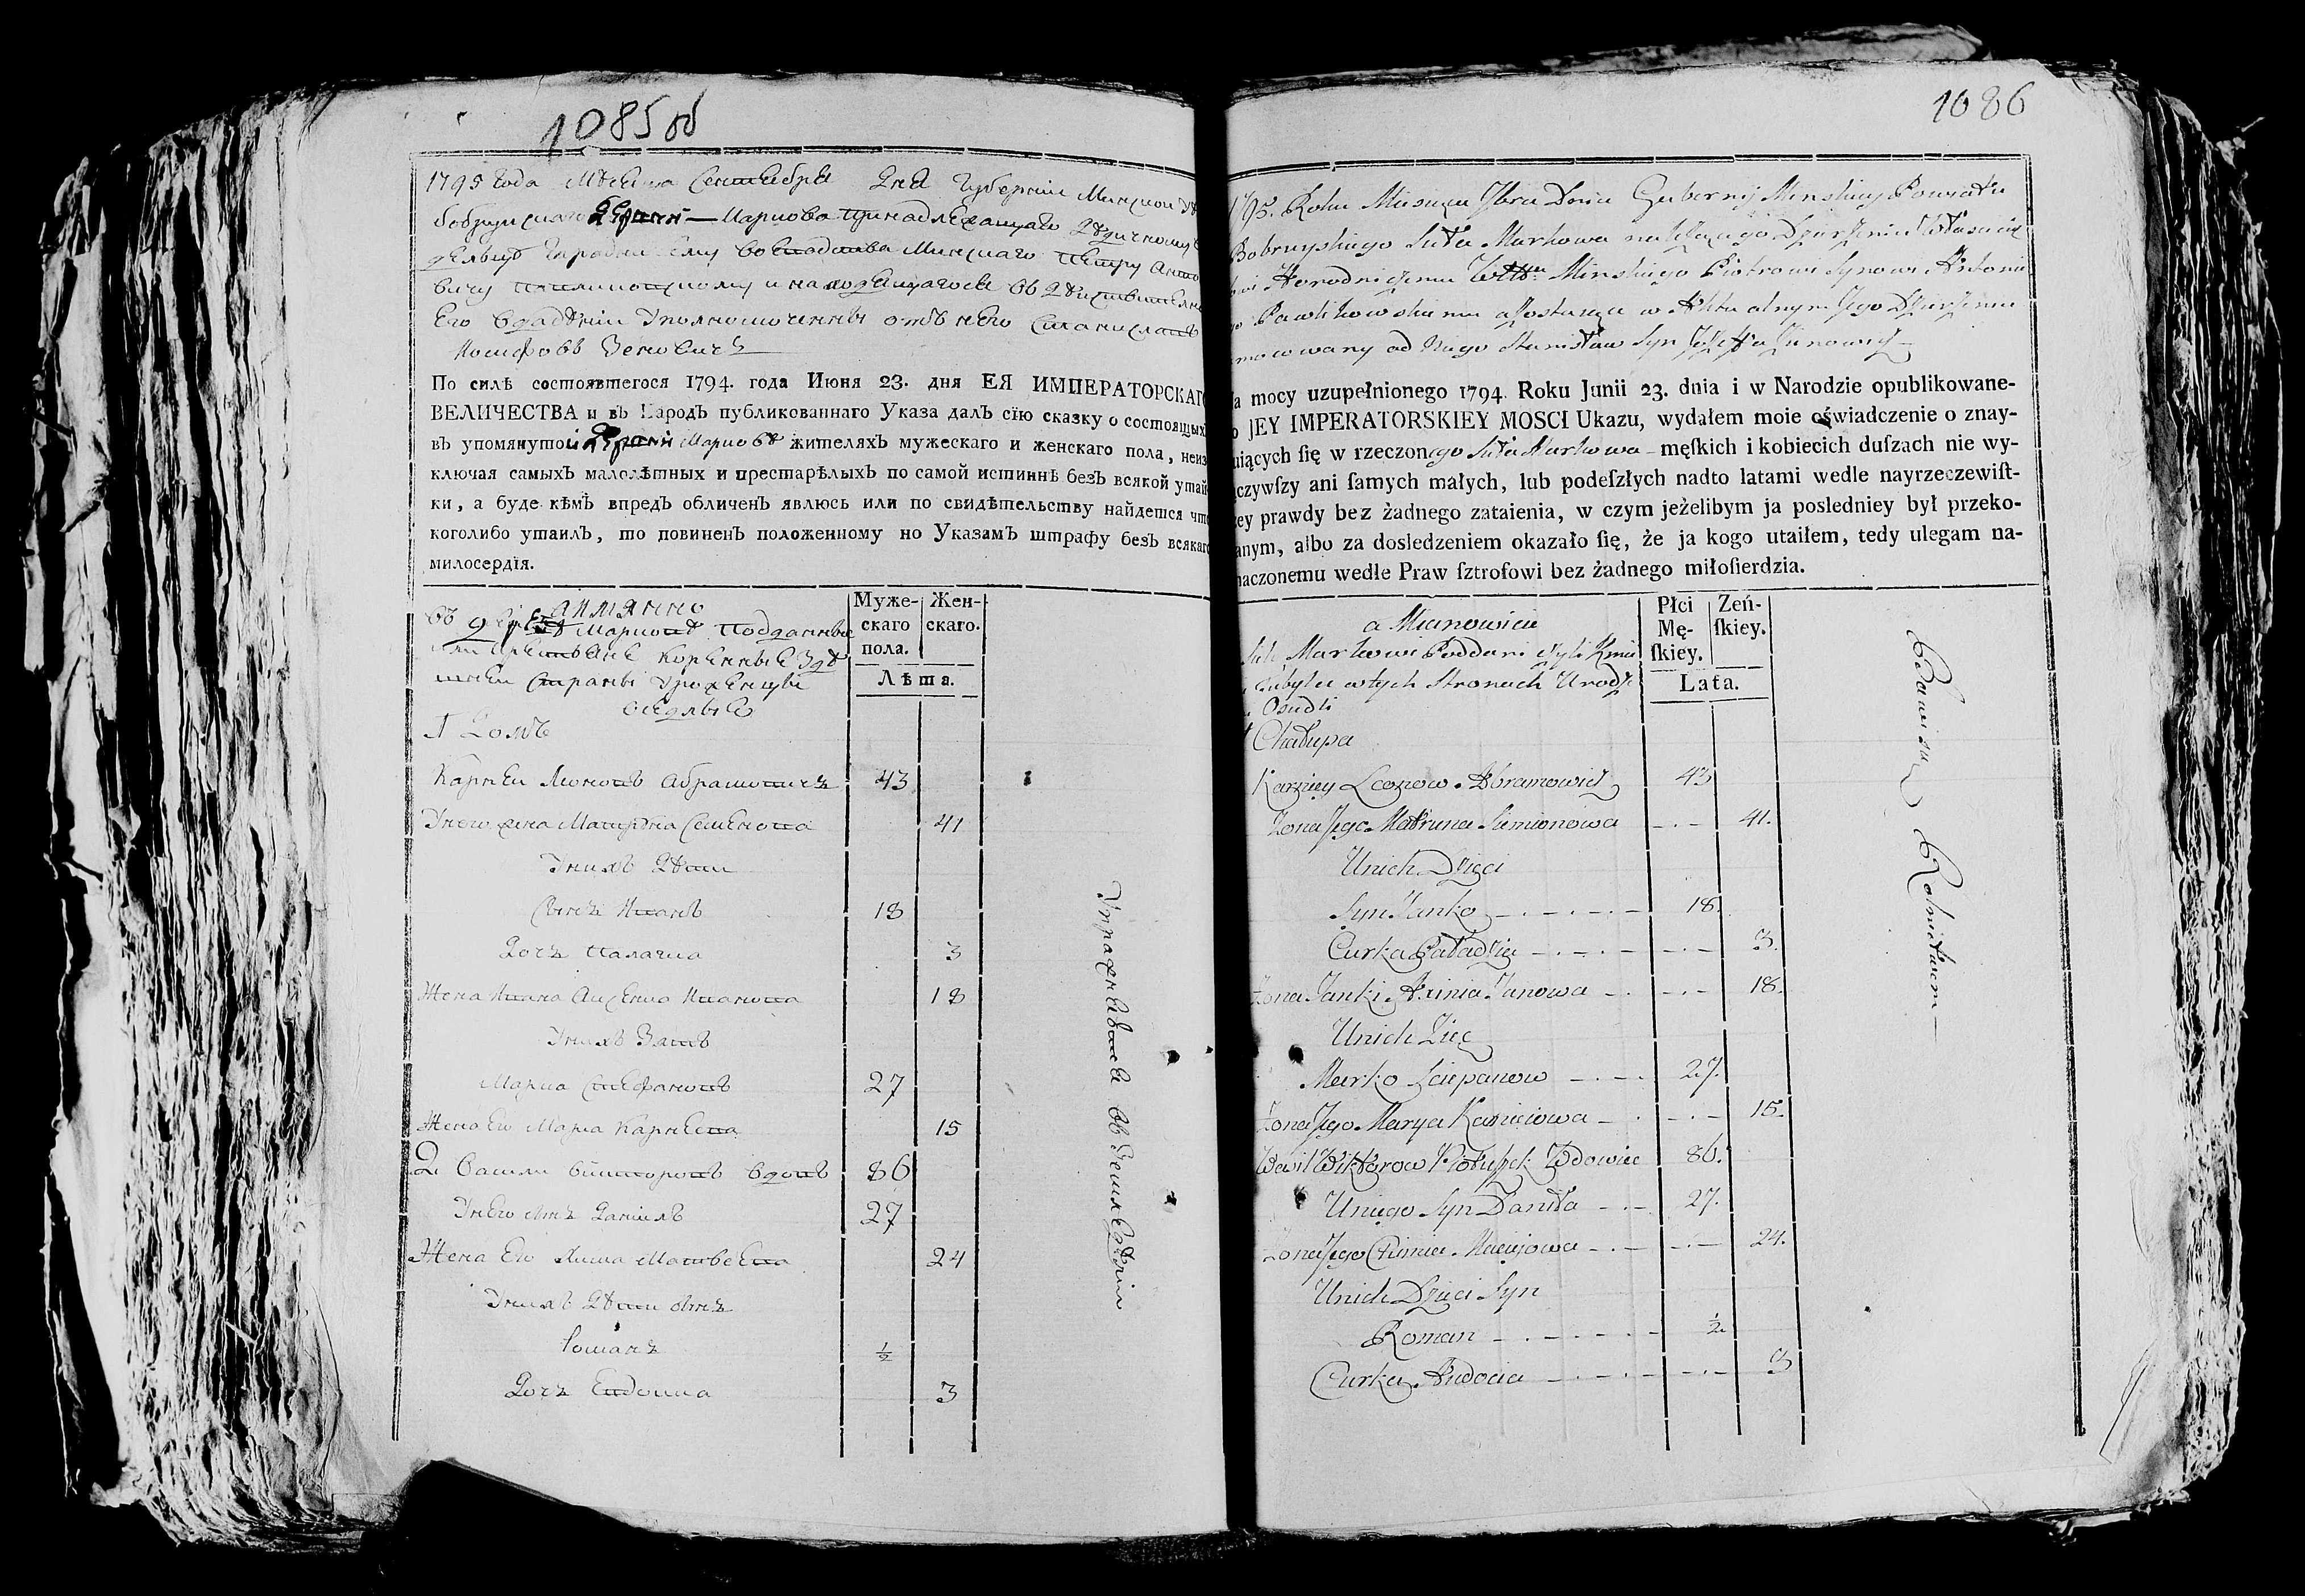 1085 об
1795 года Месеца Сентебря Дня Губернии Минской
Бобруйскаго Маркова принадлежащаго
Минскаго Петру Анто
вичу и находещагося въ
Его владѣнїи уполномоченны отъ него Станиславъ
По силѣ состоявшегося 1794. года Июня 23. дня ЕЯ ИМПЕРАТОРСКАГ
ВЕЛИЧЕСТВА и въ Народъ публикованнаго Указа далъ сїю сказку о состоящых
въ упомянутой Маркове жителяхъ мужескаго и женскаго пола, неиз
ключая самыхъ малолѣтных и престарѣлыхъ по самой истиннѣ безъ всякой утай
ки, а буде кѣмъ впредъ обличенъ явлюсь или по свидѣтельству найдется что
коголибо утаилъ, то повиненъ положенному по Указамъ штрафу безъ всякаг
милосердїя.
аимянно
Марковѣ подданные
коренные
страны уроженцы
оседлые
Муже-
скаго
пола.
Жен-
скаго.
Лѣта.
1 Домъ
Карней Леоновъ Абрамовичъ 43
У него жена Матруна Семенова 41
У нихъ Дети
Сынъ Иванъ 18
Дочъ Палагиа 3
Жена Ивана Аксенио Иванова 18
У нихъ Зать
Марка Стефановъ 27
Жена Его Мариа Карнеева 15
2 Васили Викторовъ вдовъ 86
У него сынъ Данилъ 27
Жена Его Матвеева 24
У нихъ Дети сынъ
Романъ ½
Дочъ Евдокиа 3
Упражнеются въ Земледѣлїи
1086
1795. Roku Miesięca 7bra Dnia Gubernij Minskiey Powiatu
Bobruyskiego Sieła Markowa
Horodniczemu Minskiego Piotrowi Synowi Antonie
Pawlikowskiemu w Aktualnym Jego Dzierżeniu
mocowany od Niego Stanisław Syn Józefa Zinowicz
a mocy uzupełnionego 1794. Roku Junii 23. dnia i w Narodzie opublikowane-
o JEY IMPERATORSKIEY MOSCI Ukazu, wydałem moie oświadczenie o znay-
uiących ſię w rzeczonego Sieła Markowa męſkich i kobiecich duſzach nie wy-
czywſzy ani ſamych małych, lub podeſzłych nadto latami wedle nayrzeczewiſt-
zey prawdy bez żadnego zataienia, w czym jeżelibym ja posledniey był przeko-
anym, albo za dosledzeniem okazało ſię, że ja kogo utaiłem, tedy ulegam na-
naczonemu wedle Praw ſztrofowi bez żadnego miłoſierdzia.
a Mianowicie
Markowi Poddani czyli Kmie
w tych Stronach Urodz
Osiedli
Płci
Mę-
ſkiey.
Zeń-
ſkiey.
Lata.
1 Chałupa
Karniey Leonow Abramowicz 43
Zona Jego Matruna Siemionowa 41.
U nich Dzieci
Syn Janko 18.
Curka Paładzia 3.
Zona Janki Axinia Janowa 18.
U nich Zięć
Marko Sciepanow 27.
Zona Jego Marya Karnieiowa 15.
Wasil Wiktorow Wdowiec 86.
U niego Syn Daniła 27.
Zona Jego Chimia Maciejowa 24.
U nich Dzieci Syn
Roman ½
Curka Audocia 3
Bawi się Rolnictwem